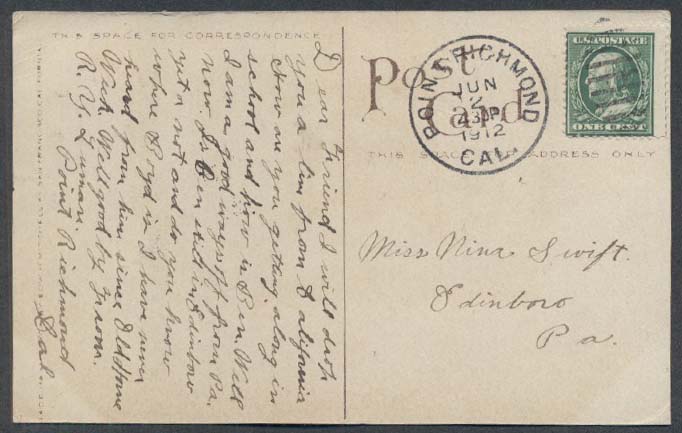 THIS SPACE FOR CORRESPONDENCE
Dear Friend I will drop
you a line from California
How are you getting along in
school and how is Ben. Well
I am a good ways off from Pa.
now. Is Ben still in Edinboro
yet or not and do you know
where Boyd is I have never
heard from him since
Well good by from.
R. Y.
Point Richmond
Cal.
Post Card
THIS SPACE FOR ADDRESS ONLY
POINT RICHMOND
JUN
2
430P
1912
CAL.
U.S. POSTAGE
ONE CENT
Miss Nina Swift.
Edinboro
Pa.